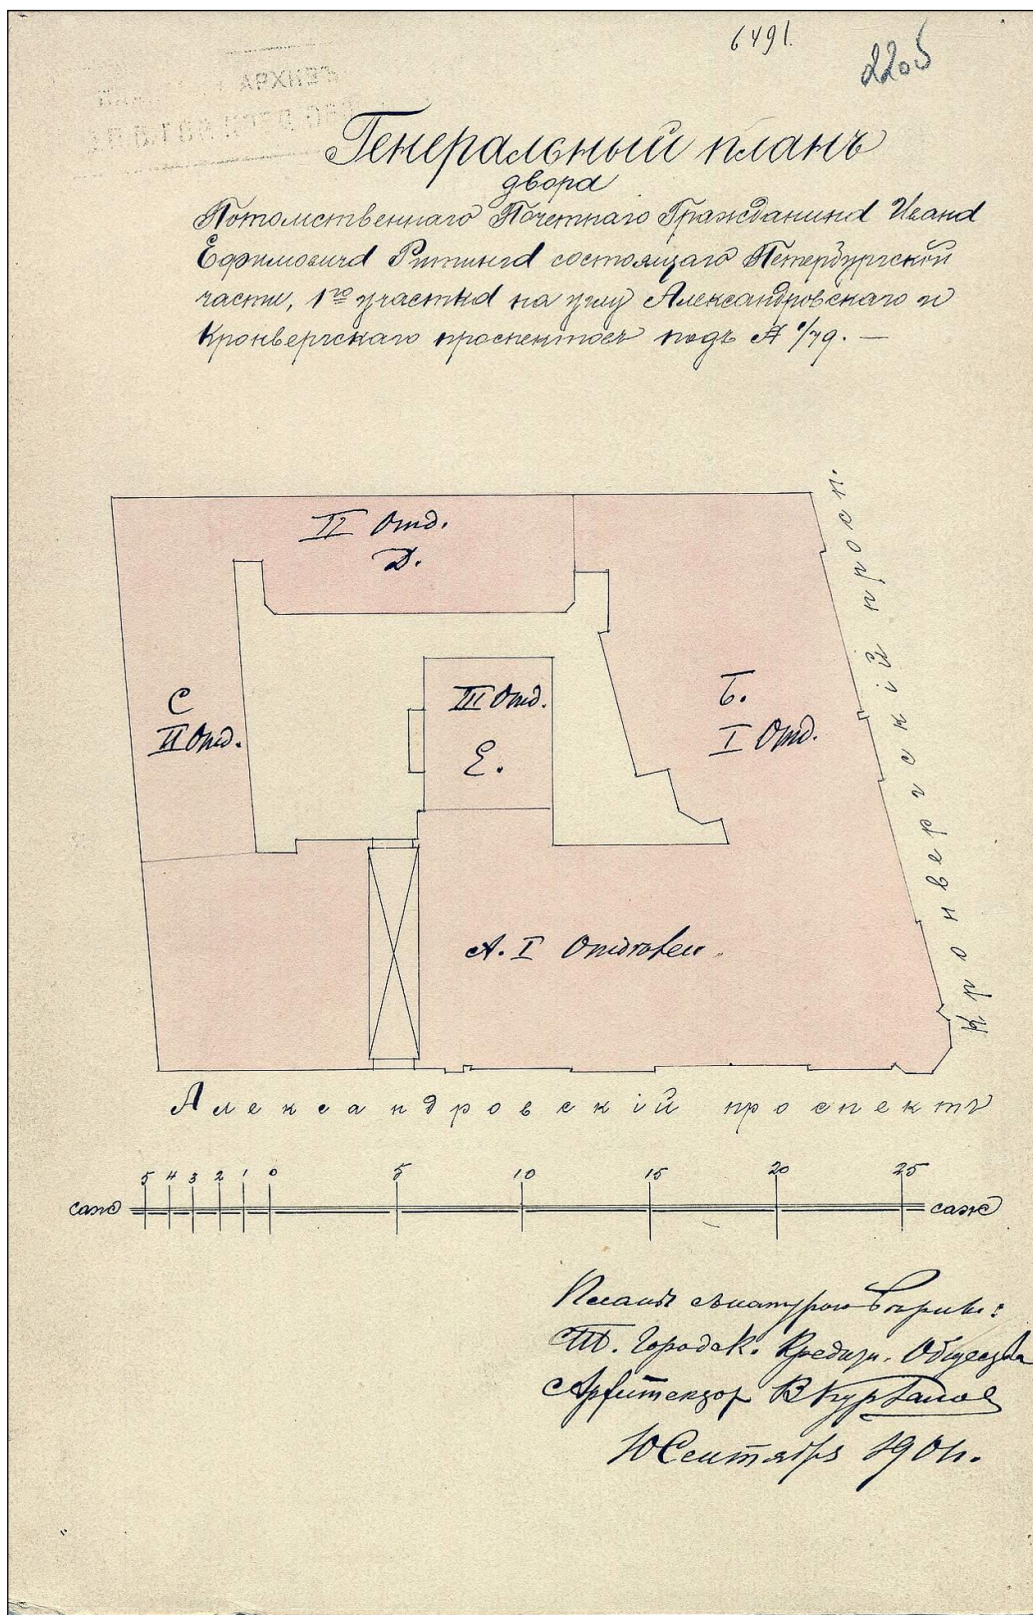 6491.
2205
АРХИВЪ
Генеральный планъ
двора
Потомственнаго Почетнаго Гражданина Ивана
Ефимовича Ритинга состоящаго Петербургской
части, 1го участка на углу Александровскаго и
Кронверкскаго проспектовъ подъ №
II Отд.
Д.
С
II Отд.
III Отд.
Е.
Б.
I Отд.
А. I
Кронверкскій просп.
Александровскій проспектъ
саж 5 4 3 2 1 0 5 10 15 20 25 саж
Планъ съ натурою вѣренъ:
Городск. Кредитн. Общества
Архитекторъ В Курзанов
10 Сентября 1901г.